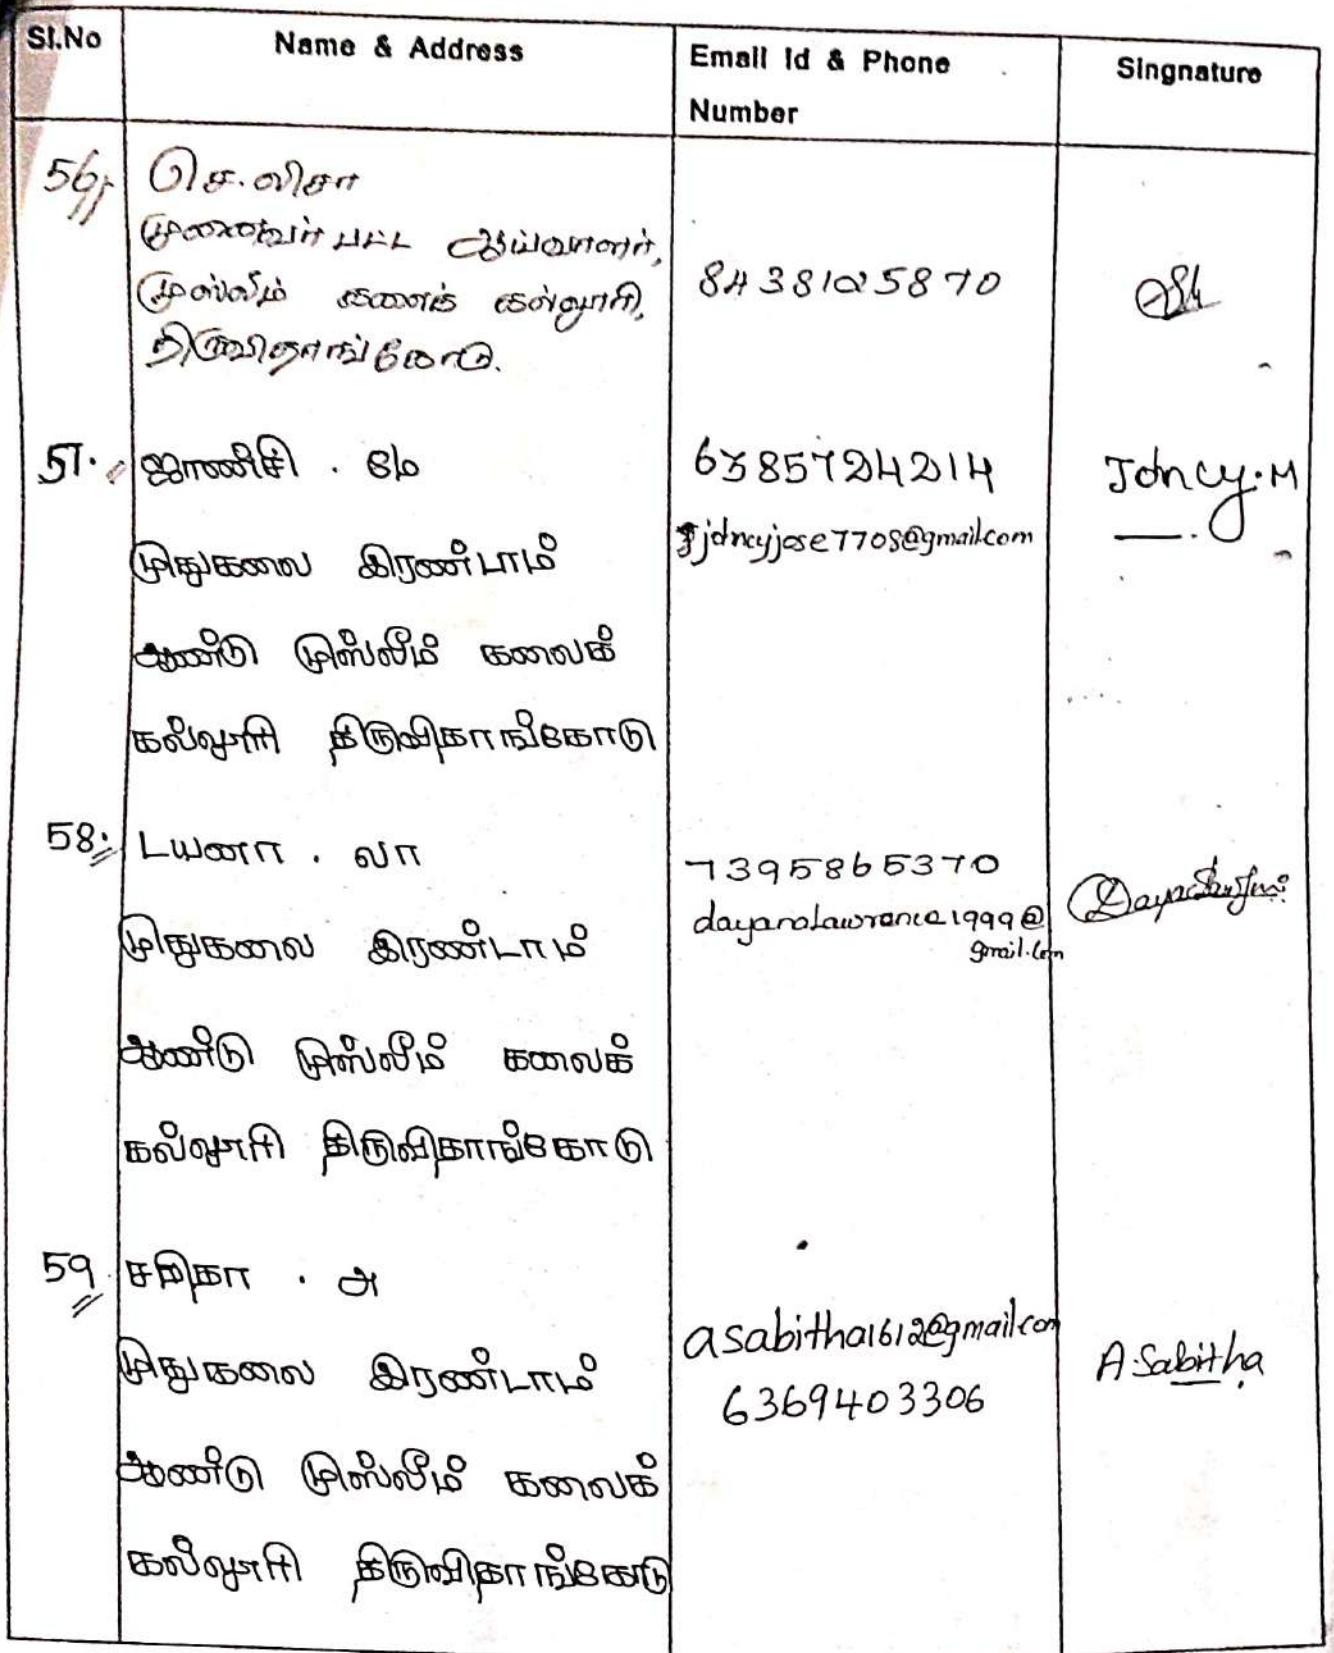 Sl.No Name & Address Email Id & Phone Number Singnature
56, செ.லிசா
முனைவர் பட்ட ஆய்வாளர்,
முஸ்லிம் கலைக் கல்லூரி,
திருவிதாங்கோடு.
8438125870
57. ஜான்சி . மே
முதுகலை இரண்டாம்
ஆண்டு முஸ்லீம் கலைக்
கல்லூரி திருவிதாங்கோடு
6385724214
jdncyjose7708@gmail.com
Jdncy.M
58. டயனா . லா
முதுகலை இரண்டாம்
ஆண்டு முஸ்லீம் கலைக்
கல்லூரி திருவிதாங்கோடு
7395865370
dayanalawrance1999@
gmail.com
59 சபிதா . அ
முதுகலை இரண்டாம்
ஆண்டு முஸ்லீம் கலைக்
கல்லூரி திருவிதாங்கோடு
asabitha1612@gmail.com
6369403306
A.Sabitha